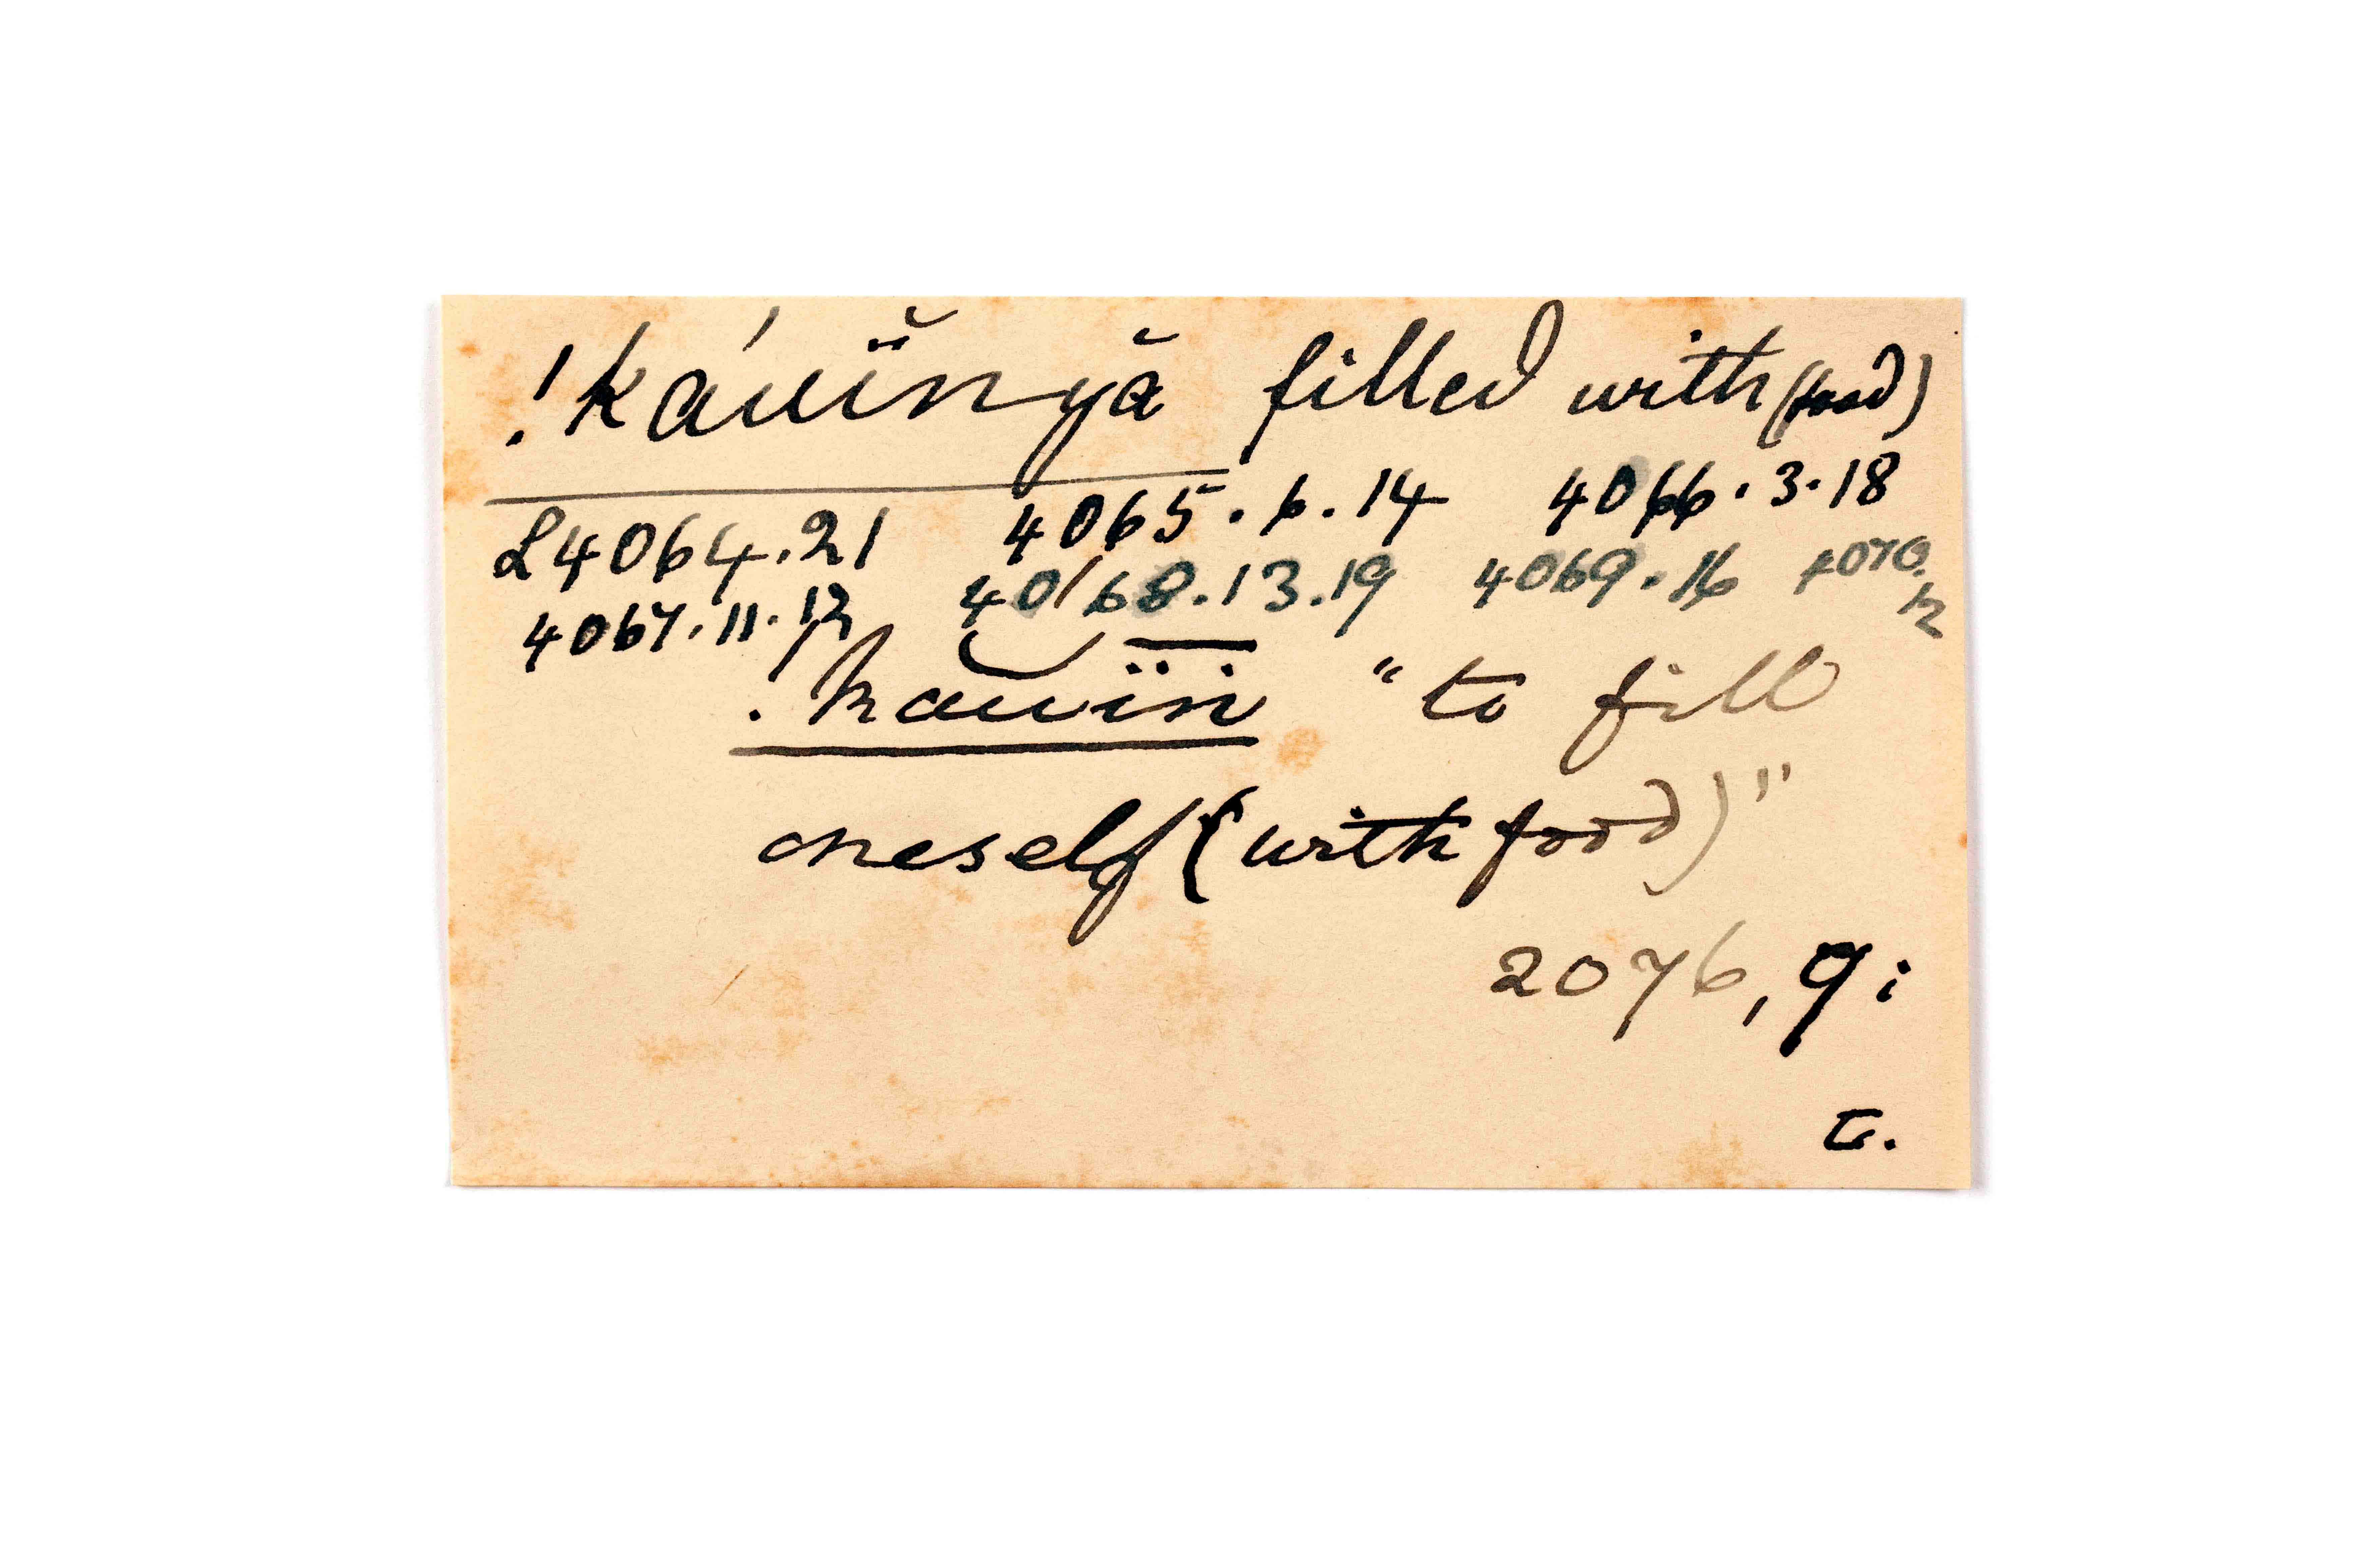 !káuïn̆yă filled with (food)
L4064.21 4065.6.14 4066.3.18
4067.11.12 4068.13.19 4069.16 4070.
12
!kauïn "to fill
oneself (with food)"
2076, 9: